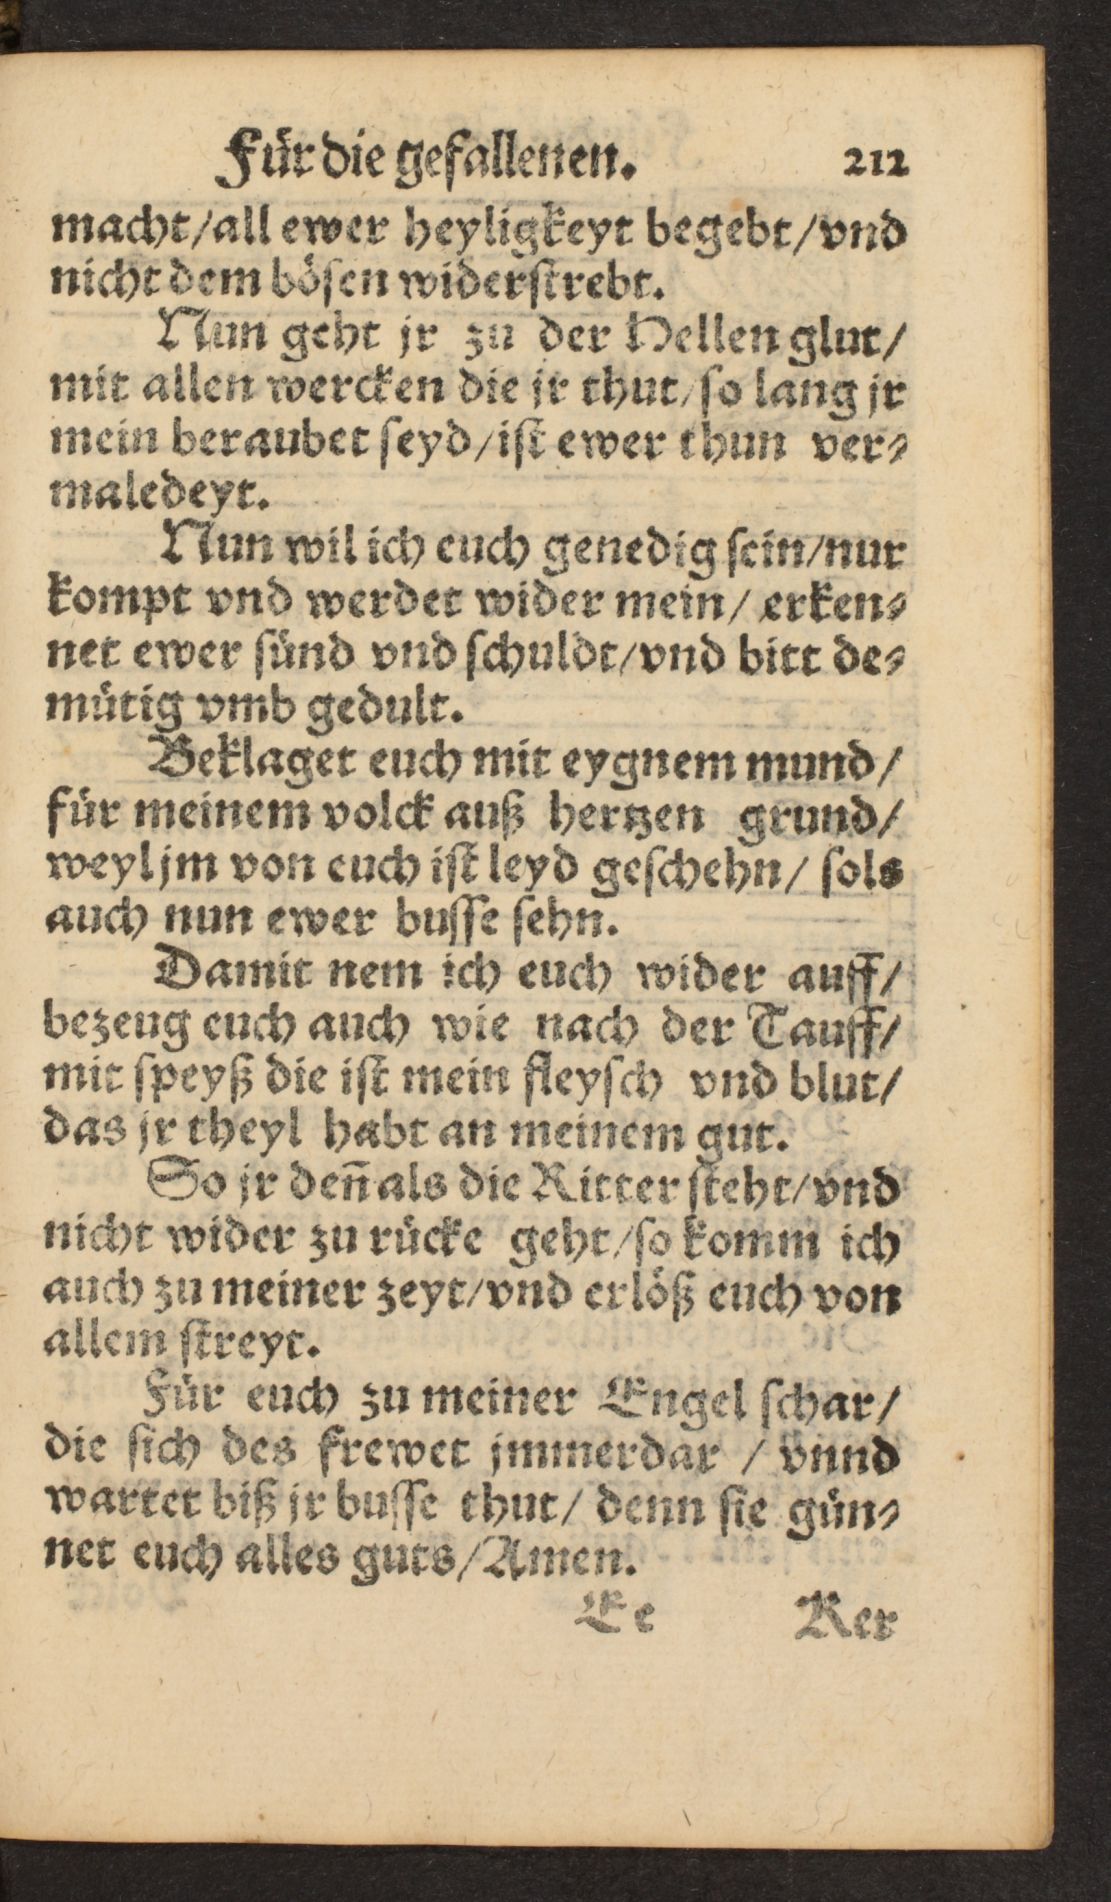 Für die gefallenen. 212
macht/all ewer heyligkeyt begebt/vnd
nicht dem bösen widerstrebt.
Nun geht jr zu der Hellen glut/
mit allen wercken die jr thut/so lang jr
mein beraubet seyd/ist ewer thun ver⸗
maledeyt.
Nun wil ich euch genedig sein/nur
kompt vnd werdet wider mein/ erken⸗
net ewer sünd vnd schuldt/vnd bitt de⸗
mütig vmb gedult.
Beklaget euch mit eygnem mund/
für meinem volck auß hertzen grund/
weyl jm von euch ist leyd geschehn/ sols
auch nun ewer busse sehn.
Damit nem ich euch wider auff/
bezeug euch auch wie nach der Tauff/
mit speyß die ist mein fleysch vnd blut/
das jr theyl habt an meinem gut.
So jr den̄ als die Ritter steht/vnd
nicht wider zu rücke geht/so komm ich
auch zu meiner zeyt/vnd erlöß euch von
allem streyt.
Für euch zu meiner Engel schar/
die sich des frewet jmmerdar / vnnd
wartet biß jr busse thut/ denn sie gün⸗
net euch alles guts/Amen.
Ee Ker